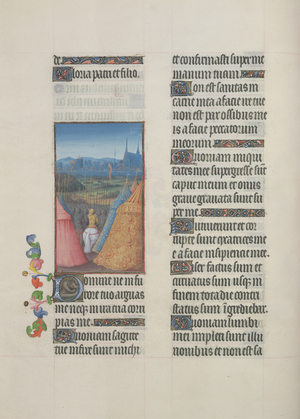 Gloria patri et filio.
Domine ne in fu
rore tuo arguas
me neq; in ira tua cor
pias me.
Quoniam sagitte
tue infixe sunt michi
et confirmasti super me
manum tuam.
Non est sanitas in
carne mea a facie ire tue
non est pax ossibus me
is a facie peccatorum
meorum.
Quoniam iniqui
tates mee supergresse sut
caput meum et onus
grave gravata sunt su
per me.
Putruerunt et cor
rupte sunt cicatrices me
e a facie insipiencie mee.
Miser factus sum et
curvatus sum usq; in
finem tota die contri
status sum ingrediebar.
Quoniam lumbi
mei impleti sunt illusi
onibus et non est sa